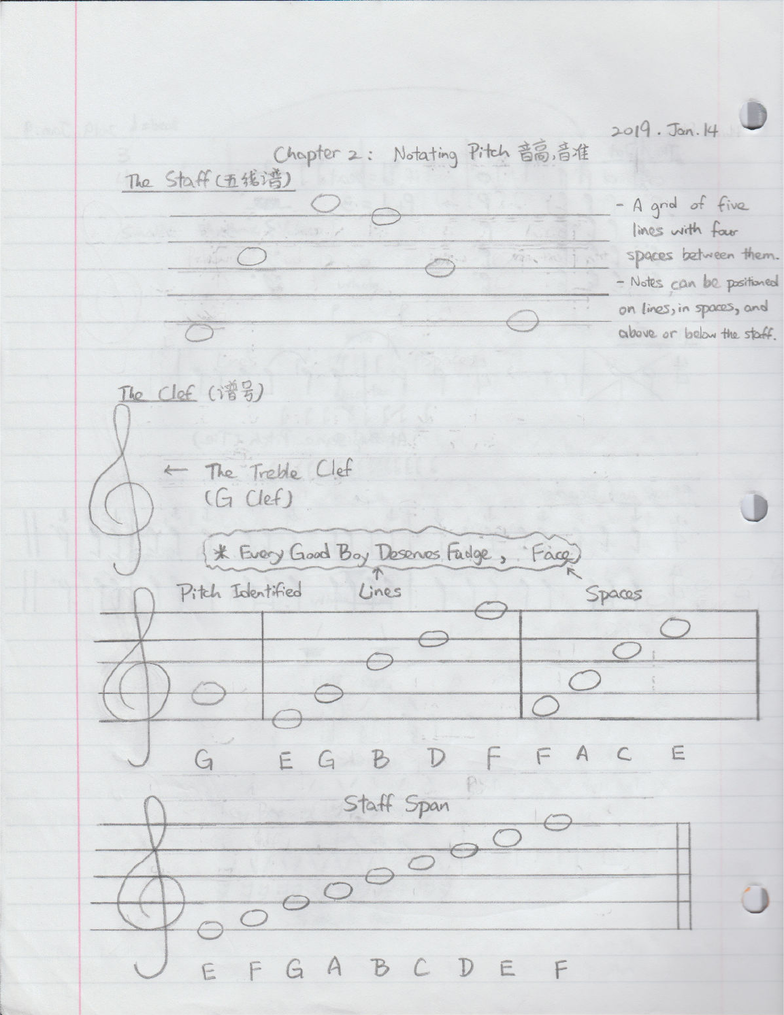 2019. Jan. 14
Chapter 2: Notating Pitch 音高,音准
The Staff (五线谱)
- A grid of five
lines with four
spaces between them.
- Notes can be positioned
on lines, in spaces, and
above or below the staff.
The Clef (谱号)
← The Treble Clef
(G Clef)
* Every Good Boy Deserves Fudge, Face
Pitch Identified
Lines
Spaces
G E G B D F F A C E
Staff Span
E F G A B C D E F